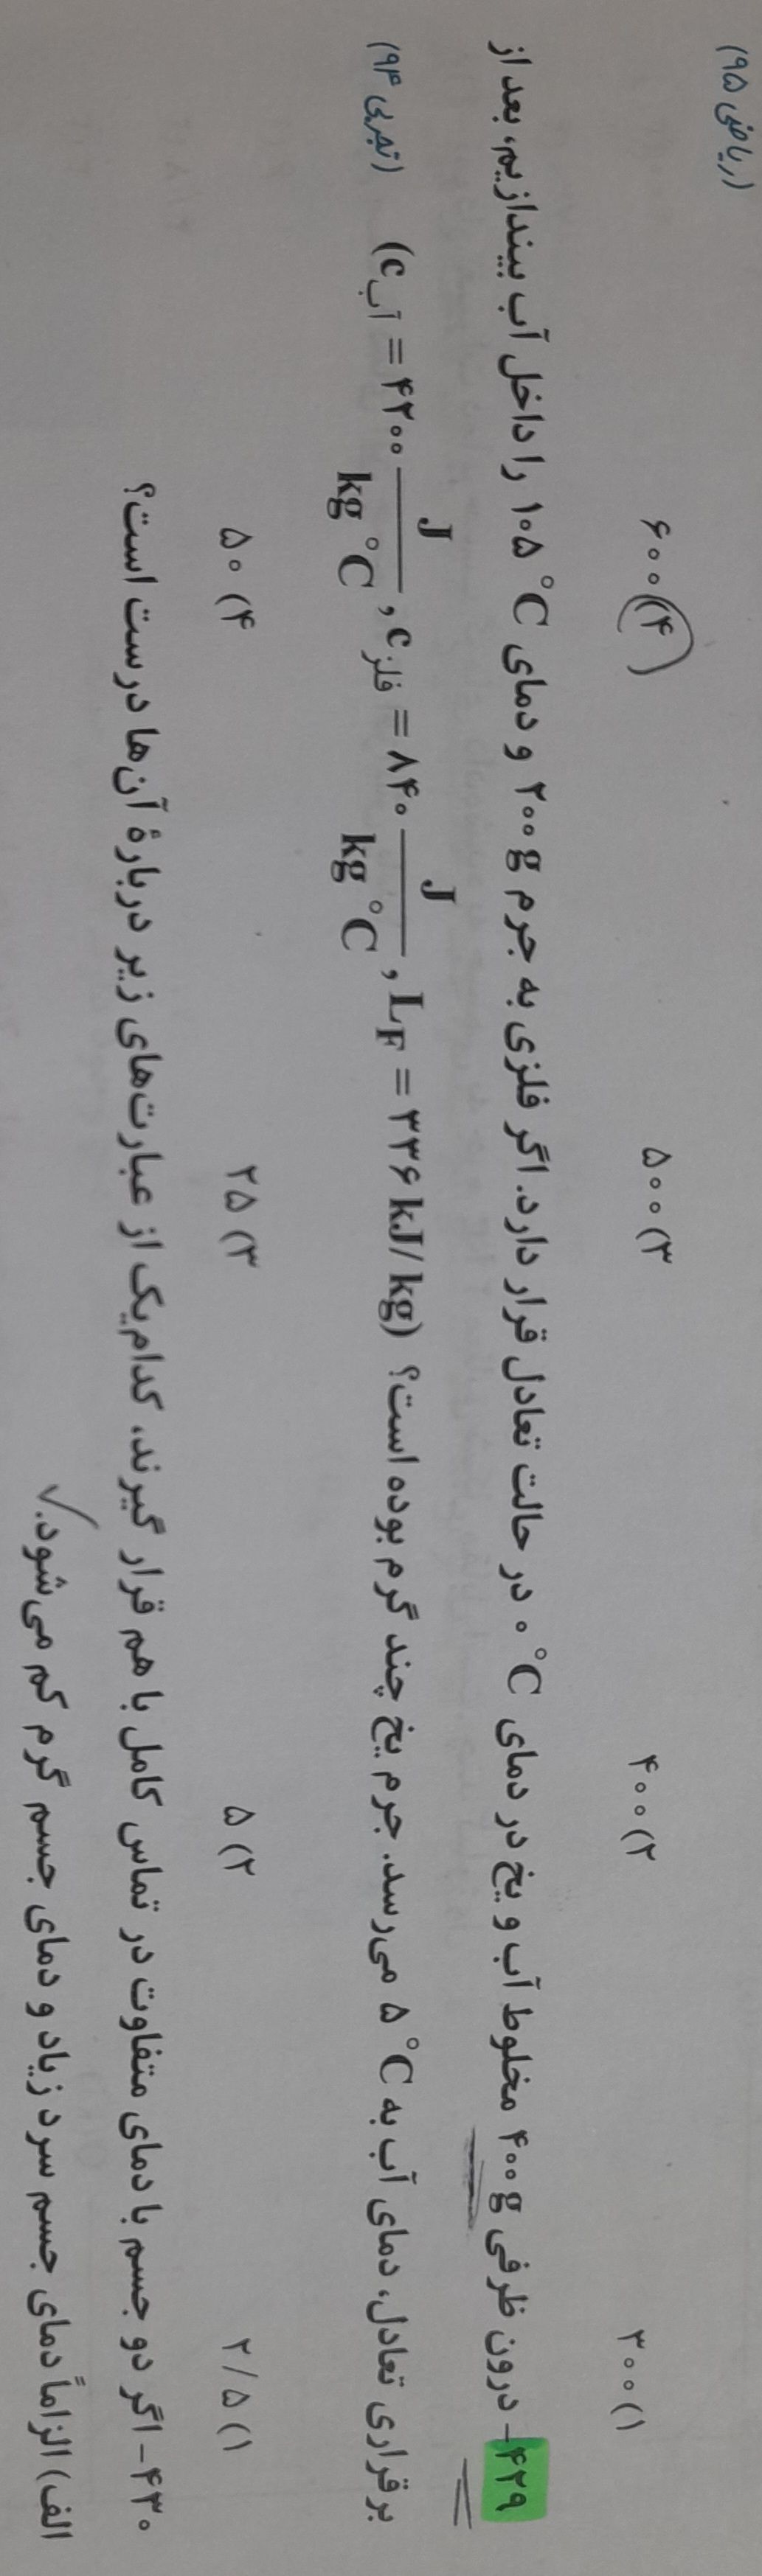 (ریاضی ۹۵)
۱) ۳۰۰ ۲) ۴۰۰ ۳) ۵۰۰ ۴) ۶۰۰
۴۲۹- درون ظرفی ۴۰۰ g مخلوط آب و یخ در دمای ۰ °C در حالت تعادل قرار دارد. اگر فلزی به جرم ۲۰۰ g و دمای ۱۰۵ °C را داخل آب بیندازیم، بعد از
برقراری تعادل، دمای آب به ۵ °C می‌رسد. جرم یخ چند گرم بوده است؟ (c آب = ۴۲۰۰ J/kg°C , c فلز = ۸۴۰ J/kg°C , L_F = ۳۳۶ kJ/kg) (تجربی ۹۴)
۱) ۲/۵ ۲) ۵ ۳) ۲۵ ۴) ۵۰
۴۳۰- اگر دو جسم با دمای متفاوت در تماس کامل با هم قرار گیرند، کدام‌یک از عبارت‌های زیر دربارهٔ آن‌ها درست است؟
الف) الزاماً دمای جسم سرد زیاد و دمای جسم گرم کم می‌شود. ✓